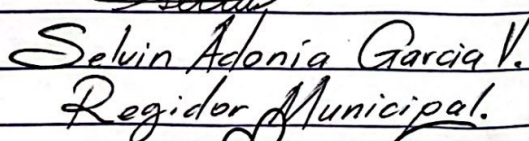 Selvin Adonia Garcia V.
Regidor Municipal.